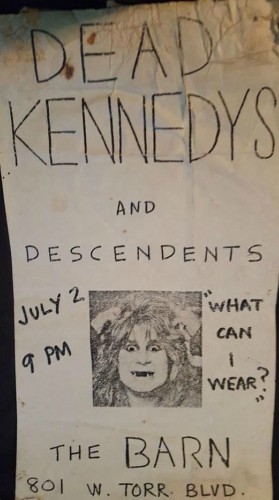 DEAD
KENNEDYS
AND
DESCENDENTS
JULY 2
9 PM
"WHAT
CAN
I
WEAR?"
THE BARN
801 W. TORR. BLVD.